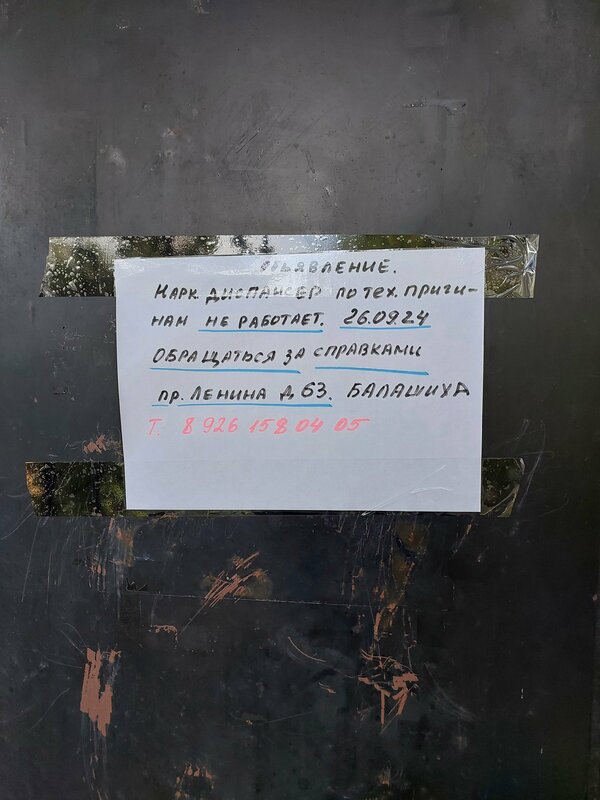 ОБЪЯВЛЕНИЕ.
НАРК ДИСПАНСЕР ПО ТЕХ. ПРИЧИ-
НАМ НЕ РАБОТАЕТ. 26.09.24
ОБРАЩАТЬСЯ ЗА СПРАВКАМИ
ПР. ЛЕНИНА Д 63. БАЛАШИХА
Т. 8 926 158 04 05